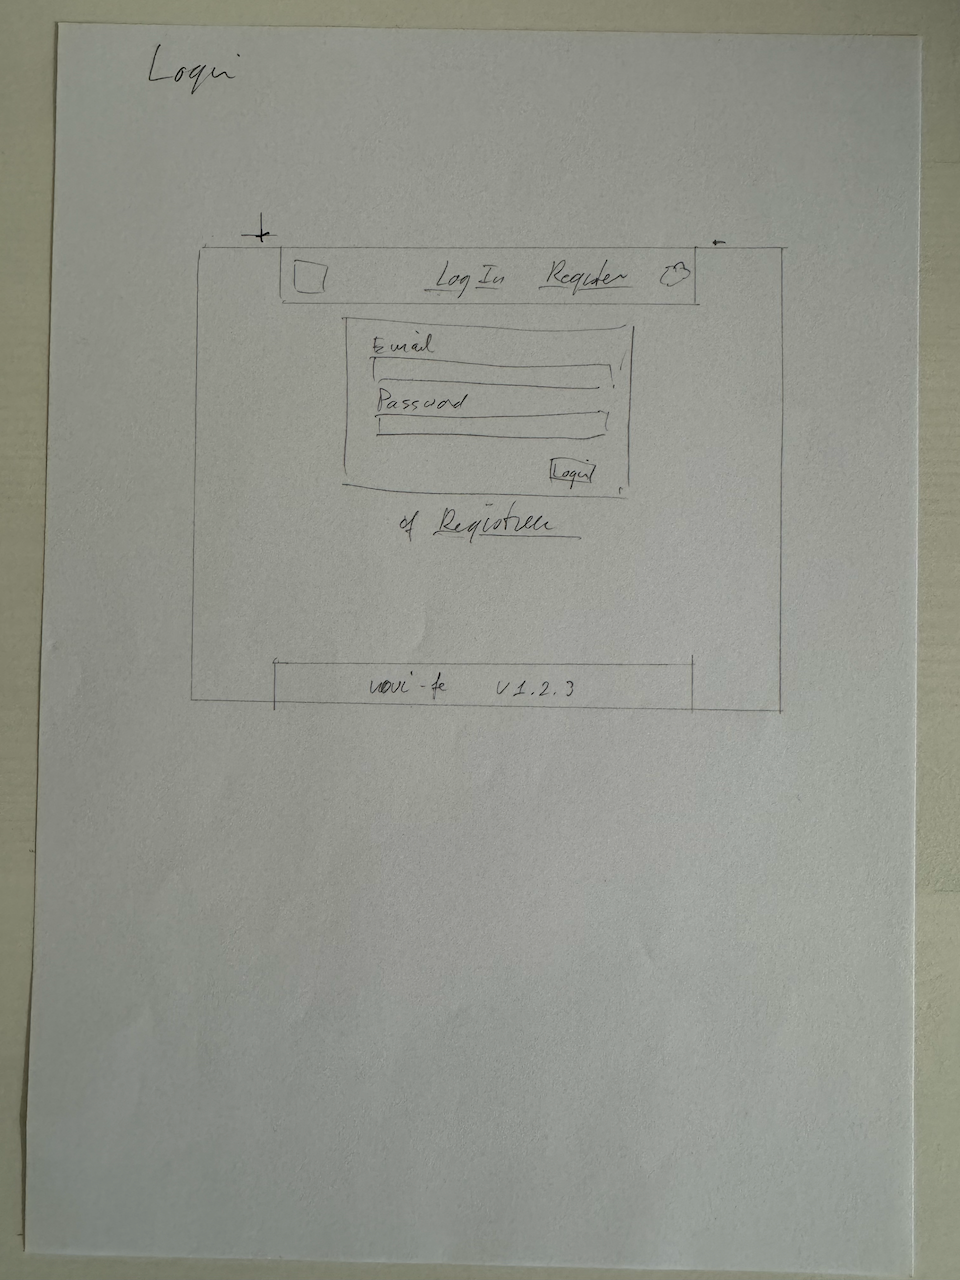 Login
Log In Register
Email
Password
Login
of Registreer
novi-fe v1.2.3